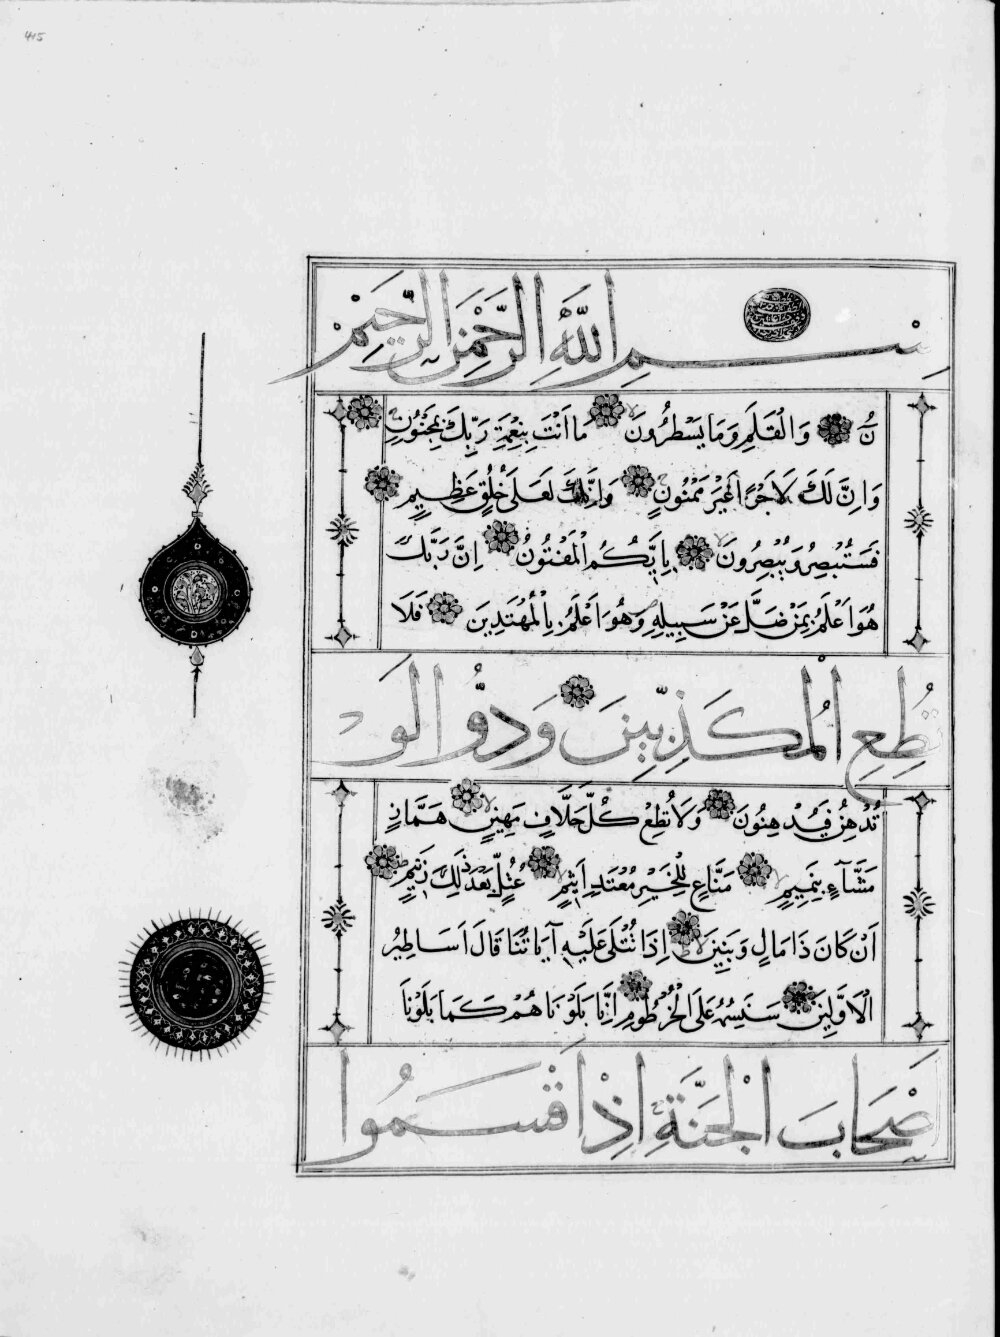 415
بِسْمِ اللّٰهِ الرَّحْمٰنِ الرَّحِيمِ
نُ وَالْقَلَمِ وَمَا يَسْطُرُونَ مَا اَنْتَ بِنِعْمَةِ رَبِّكَ بِمَجْنُونٍ
وَاِنَّ لَكَ لَاَجْرًا غَيْرَ مَمْنُونٍ وَاِنَّكَ لَعَلَى خُلُقٍ عَظِيمٍ
فَسَتُبْصِرُ وَيُبْصِرُونَ بِاَيِّكُمُ الْمَفْتُونُ اِنَّ رَبَّكَ
هُوَ اَعْلَمُ بِمَنْ ضَلَّ عَنْ سَبِيلِهِ وَهُوَ اَعْلَمُ بِالْمُهْتَدِينَ فَلَا
تُطِعِ الْمُكَذِّبِينَ وَدُّوا لَوْ
تُدْهِنُ فَيُدْهِنُونَ وَلَا تُطِعْ كُلَّ حَلَّافٍ مَهِينٍ هَمَّازٍ
مَشَّآءٍ بِنَمِيمٍ مَنَّاعٍ لِلْخَيْرِ مُعْتَدٍ اَثِيمٍ عُتُلٍّ بَعْدَ ذٰلِكَ زَنِيمٍ
اَنْ كَانَ ذَا مَالٍ وَبَنِينَ اِذَا تُتْلَى عَلَيْهِ آيَاتُنَا قَالَ اَسَاطِيرُ
الْاَوَّلِينَ سَنَسِمُهُ عَلَى الْخُرْطُومِ اِنَّا بَلَوْنَاهُمْ كَمَا بَلَوْنَا
اَصْحَابَ الْجَنَّةِ اِذْ اَقْسَمُوا